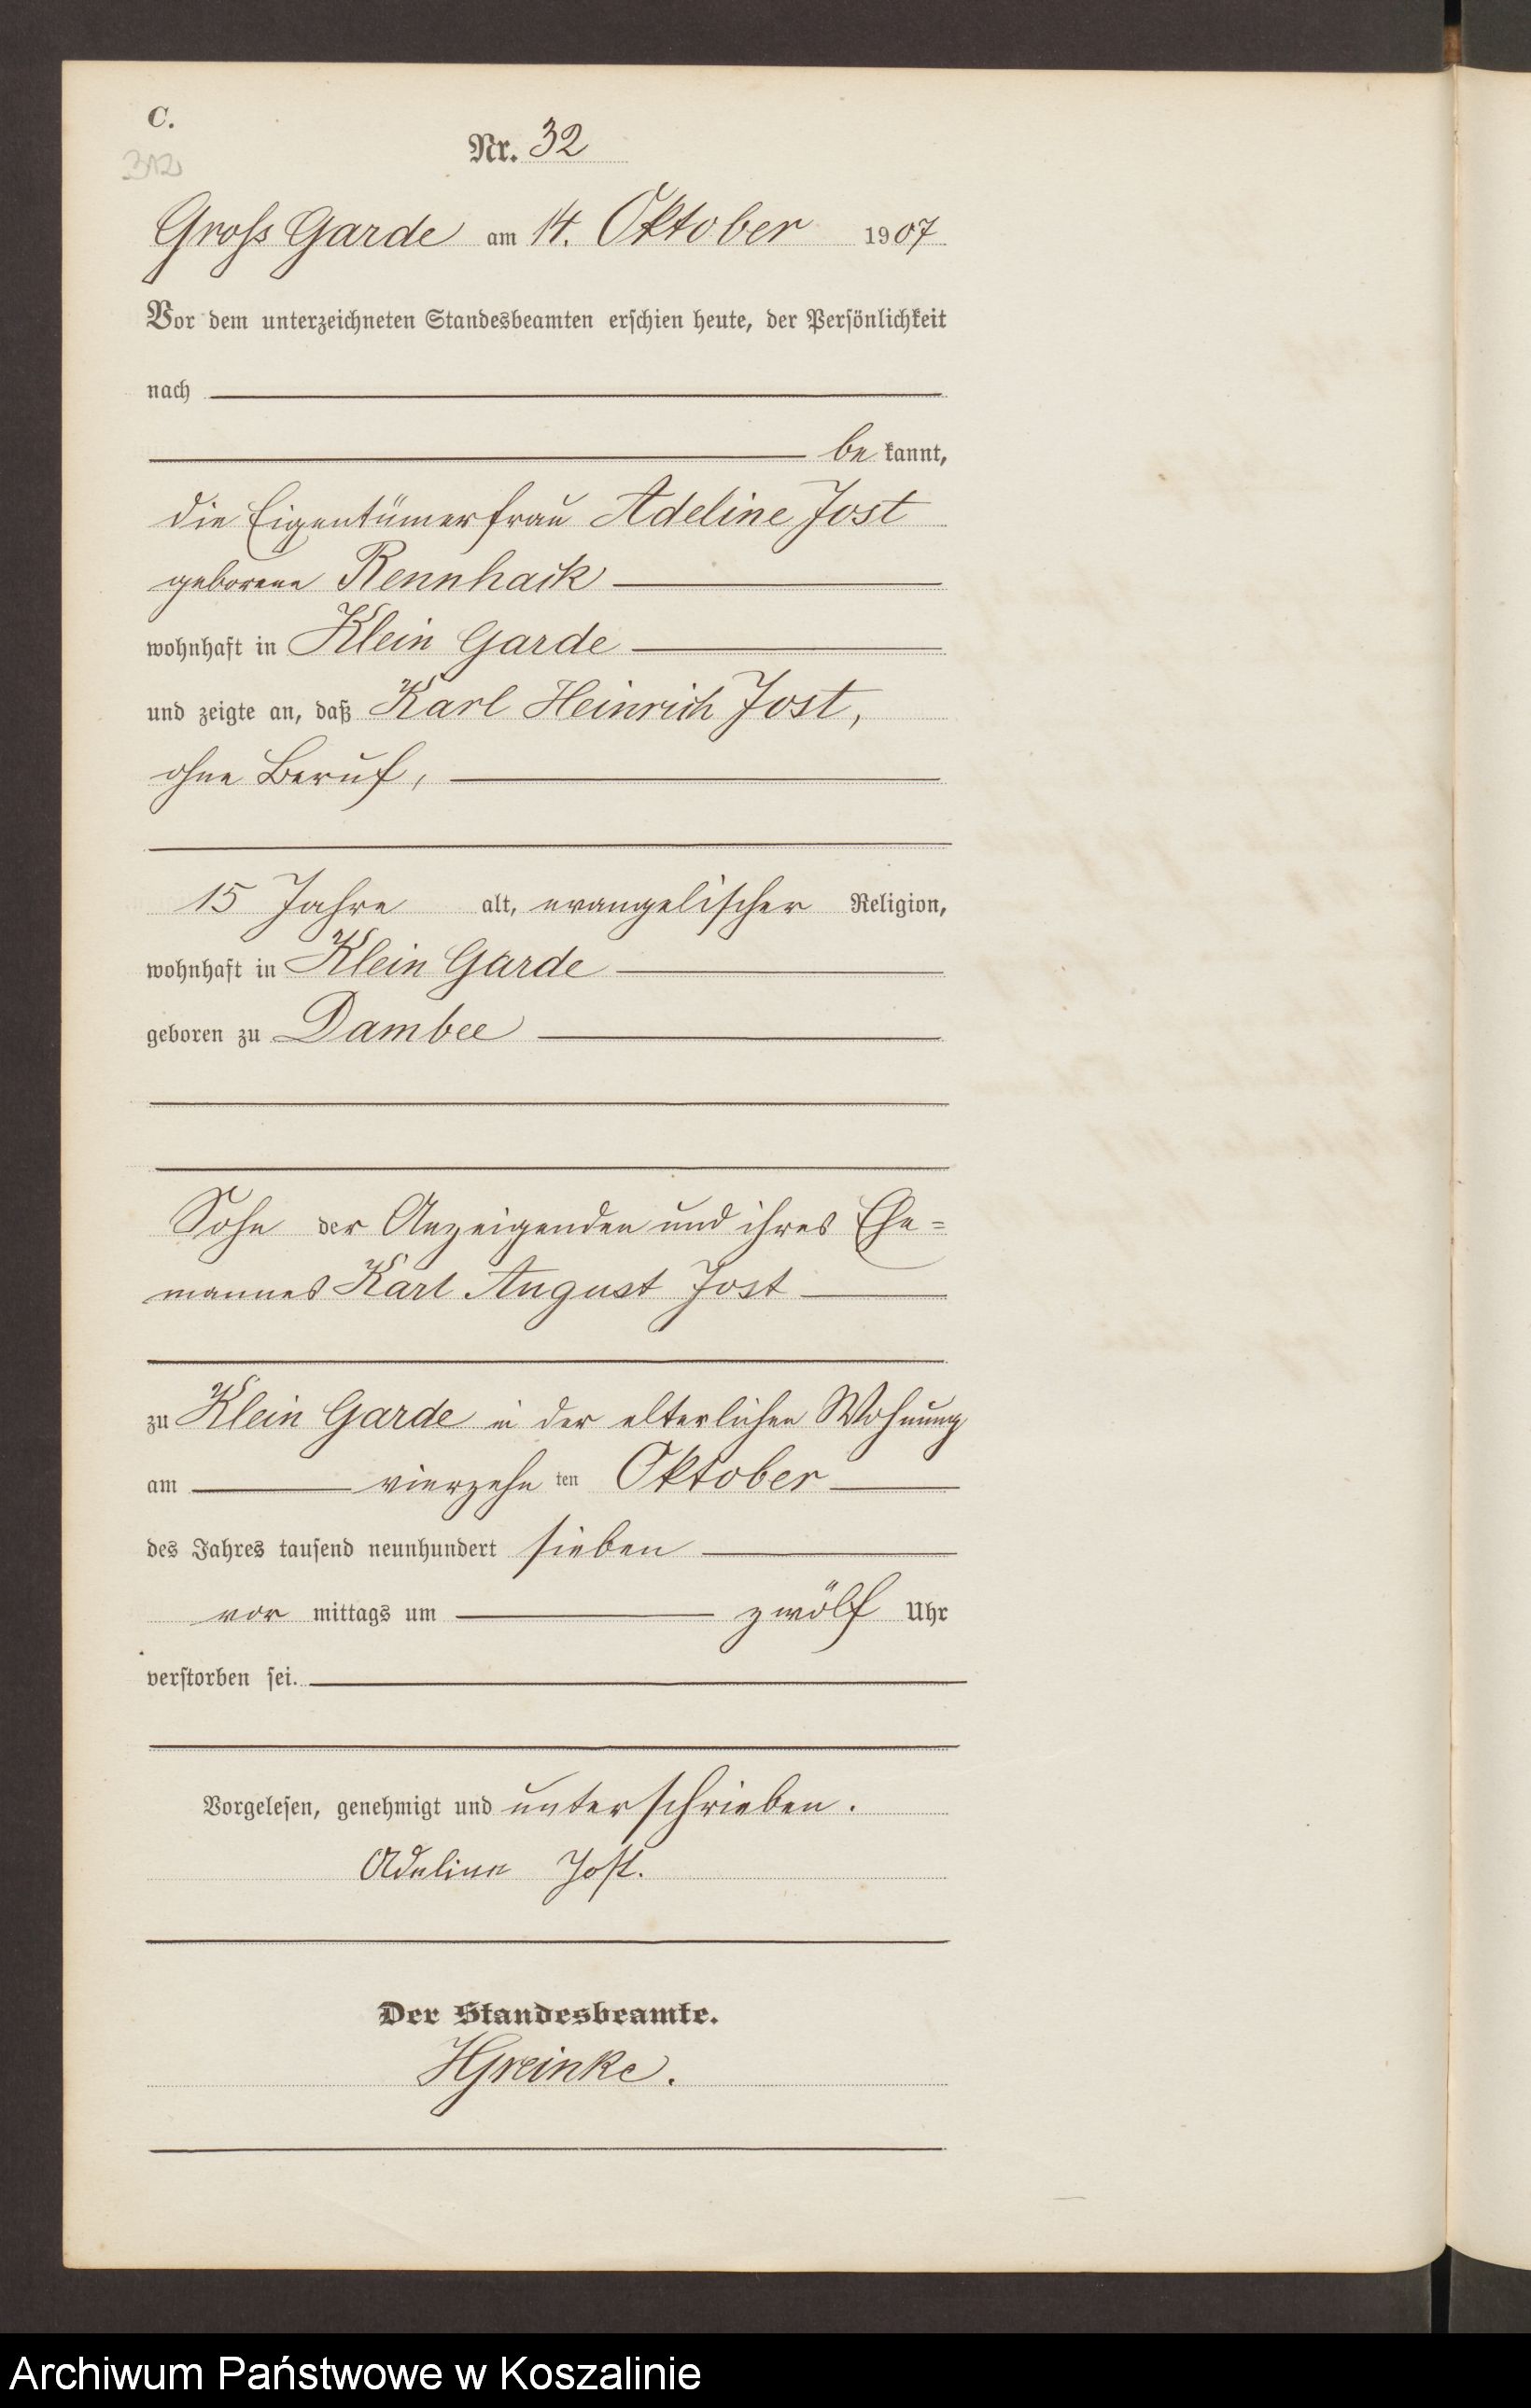 C.
312
Nr. 32
Gross Garde am 14. Oktober 1907
Vor dem unterzeichneten Standesbeamten erschien heute, der Persönlichkeit
nach
be kannt,
die Eigentümerfrau Adeline Jost
geborene Rennhack
wohnhaft in Klein Garde
und zeigte an, daß Karl Heinrich Jost,
ohne Beruf,
15 Jahre alt, evangelischer Religion,
wohnhaft in Klein Garde
geboren zu Dambee
Sohn der Anzeigenden und ihres Ehe=
mannes Karl August Jost
zu Klein Garde in der elterlichen Wohnung
am vierzehn ten Oktober
des Jahres tausend neunhundert sieben
vor mittags um zwölf Uhr
verstorben sei.
Vorgelesen, genehmigt und unterschrieben.
Adeline Jost.
Der Standesbeamte.
HGreinke.
Archiwum Państwowe w Koszalinie